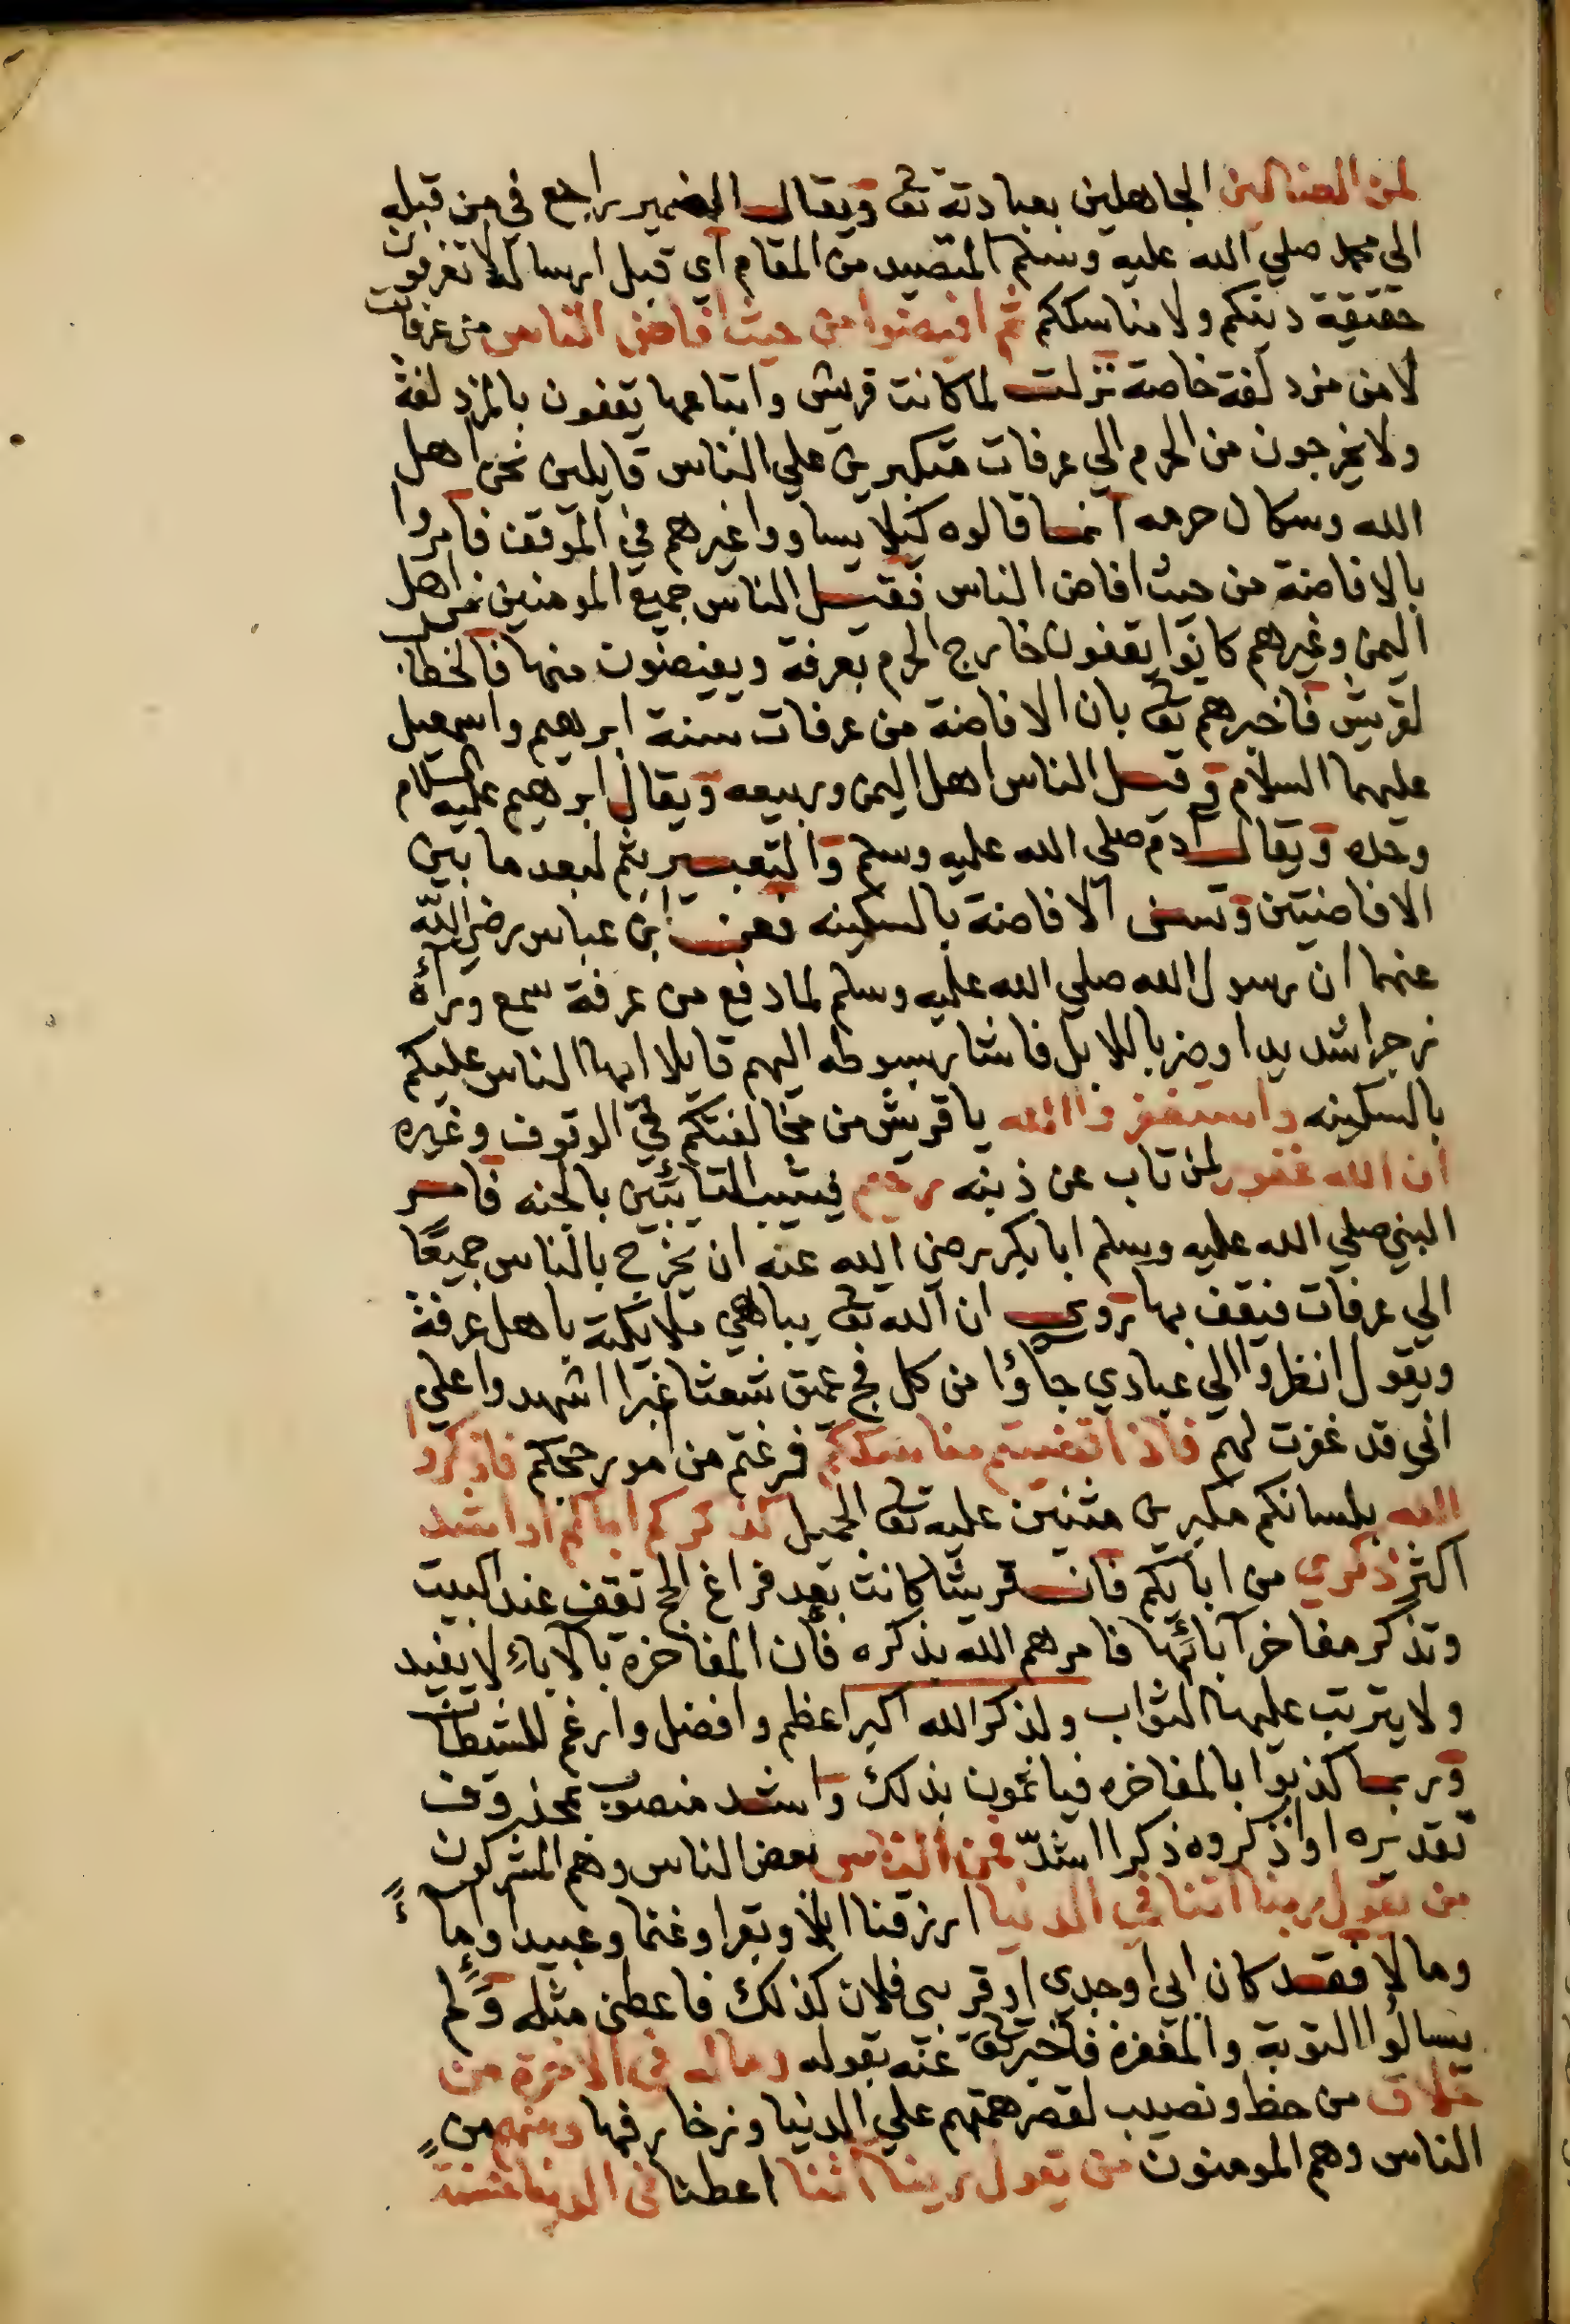 لمن الضالين الجاهلين بعبادته تعا ويقال الضمير راجع في من قبله
الى محمد صلي الله عليه وسلم المتصيد من المقام أي قبل ارساله لا تعرفون
حقيقة دينكم ولا مناسككم ثم افيضوا من حيث أفاض الناس من عرفات
لا من مزدلفة خاصة نزلت لما كانت قريش واتباعها يقفون بالمزدلفة
ولا يخرجون من الحرم الي عرفات متكبرين علي الناس قايلين نحن اهل
الله وسكان حرمه انما قالوه كيلا يساووا غيرهم في الموقف فامروا
بالافاضة من حيث افاض الناس فقيل الناس جميع المومنين من اهل
اليمن وغيرهم كانوا يقفون خارج الحرم بعرفة ويفيضون منها فالخطاب
لقريش فاخبرهم تعا بان الافاضة من عرفات سنة ابرهيم واسمعيل
عليهما السلام وقيل الناس اهل اليمن وربيعه ويقال ابرهيم عليه السلام
وحده ويقال ادم صلى الله عليه وسلم والتعبير بثم لبعد ما بين
الافاضتين وتسن الافاضة بالسكينه فعن ابن عباس رضي الله
عنهما ان رسول الله صلي الله عليه وسلم لما دفع من عرفة سمع وراه
زجرا شديدا وضربا للابل فاشار بسوطه اليهم قايلا ايها الناس عليكم
بالسكينه واستغفروا الله يا قريش من مخالفتكم في الوقوف وغيره
ان الله غفور لمن تاب عن ذنبه رحيم فيثيب التائبين بالجنه فامر
النبي صلي الله عليه وسلم ابا بكر رضي الله عنه ان يخرج بالناس جميعًا
الي عرفات فيقف بها روي ان الله تعا يباهي ملايكته باهل عرفة
ويقول انظروا الي عبادي جاؤا من كل فج عميق شعثا غبرا اشهدوا علي
اني قد غفرت لهم فاذا قضيتم مناسككم فرغتم من امور حجكم فاذكروا
الله بلسانكم مكبرين مثنين عليه تعا الجميل كذكركم اباكم او اشد
اكثر ذكري من ابايكم فان قريشا كانت بعد فراغ الحج تقف عند البيت
وتذكر مفاخر آبائها فامرهم الله بذكره فان المفاخرة بالاباء لا يفيد
ولا يترتب عليها الثواب ولذكر الله اكبر اعظم وافضل وارغم للشيطان
وربما كذبوا بالمفاخره فياثمون بذلك واشد منصوب بمحذوف
تقديره او اذكروه ذكرا اشدّ فمن الناس بعض الناس وهم المشركون
من يقول ربنا اتنا في الدنيا ارزقنا ابلا وبقرا وغنما وعبيدا وإماءً
ومالا فقد كان ابي او جدي او قريبي فلان كذلك فاعطني مثله ولم
يسالوا التوبة والمغفرة فاخبر تعا عنه بقوله وماله في الاخرة من
خلاق من حظ ونصيب لقصر همتهم علي الدنيا وزخارفها ومنهم من
الناس وهم المومنون من يقول ربنا آتنا اعطنا في الدنيا حسنة